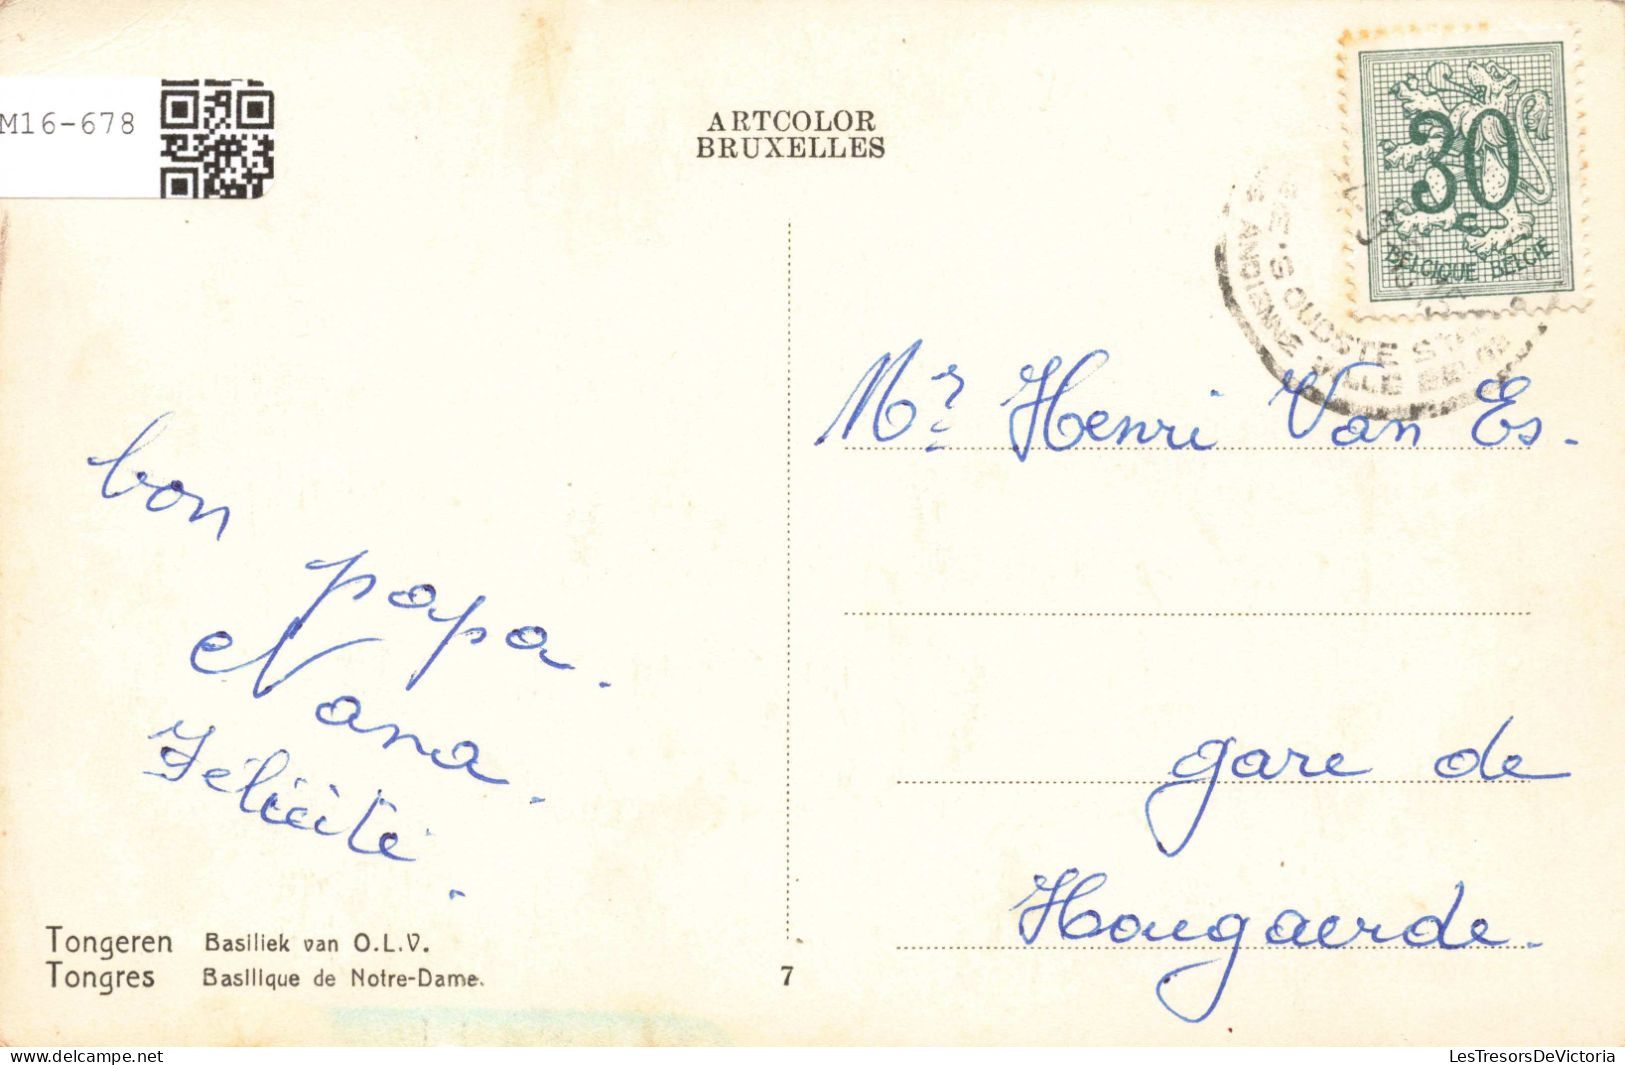 M16-678
ARTCOLOR
BRUXELLES
30
c
BELGIQUE BELGIË
OUDSTE
VILLE
Mr Henri Van Es.
gare de
Hougaerde.
bon
papa.
et
Nana.
Félicité.
Tongeren Basiliek van O.L.V.
Tongres Basilique de Notre-Dame.
7
www.delcampe.net
LesTresorsDeVictoria